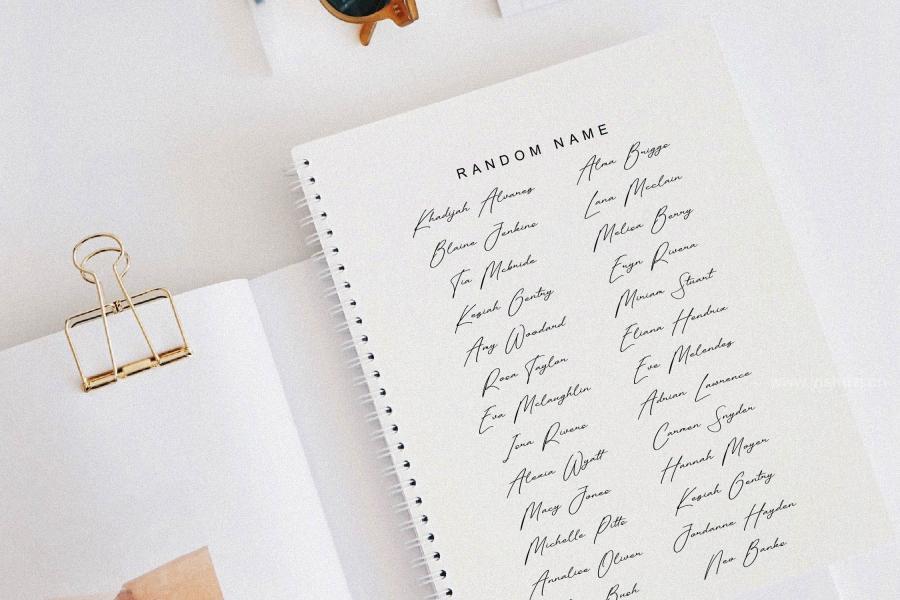 RANDOM NAME
Khadijah Alvarez
Blaine Jenkins
Tia Mcbride
Keziah Gentry
Amy Woodard
Rosa Taylor
Eva Mclaughlin
Rivers
Alexia Wyatt
Macy Jones
Michelle Pitts
Annalise Oliver
Alma Briggs
Lana Mcclain
Melisa Berry
Rivera
Miriam Stuart
Eliana Hendrix
Eve Melendez
Adrian Lawrence
Carmen Snyder
Hannah Moyer
Keziah Gentry
Jordanne Hayden
Nev Banks